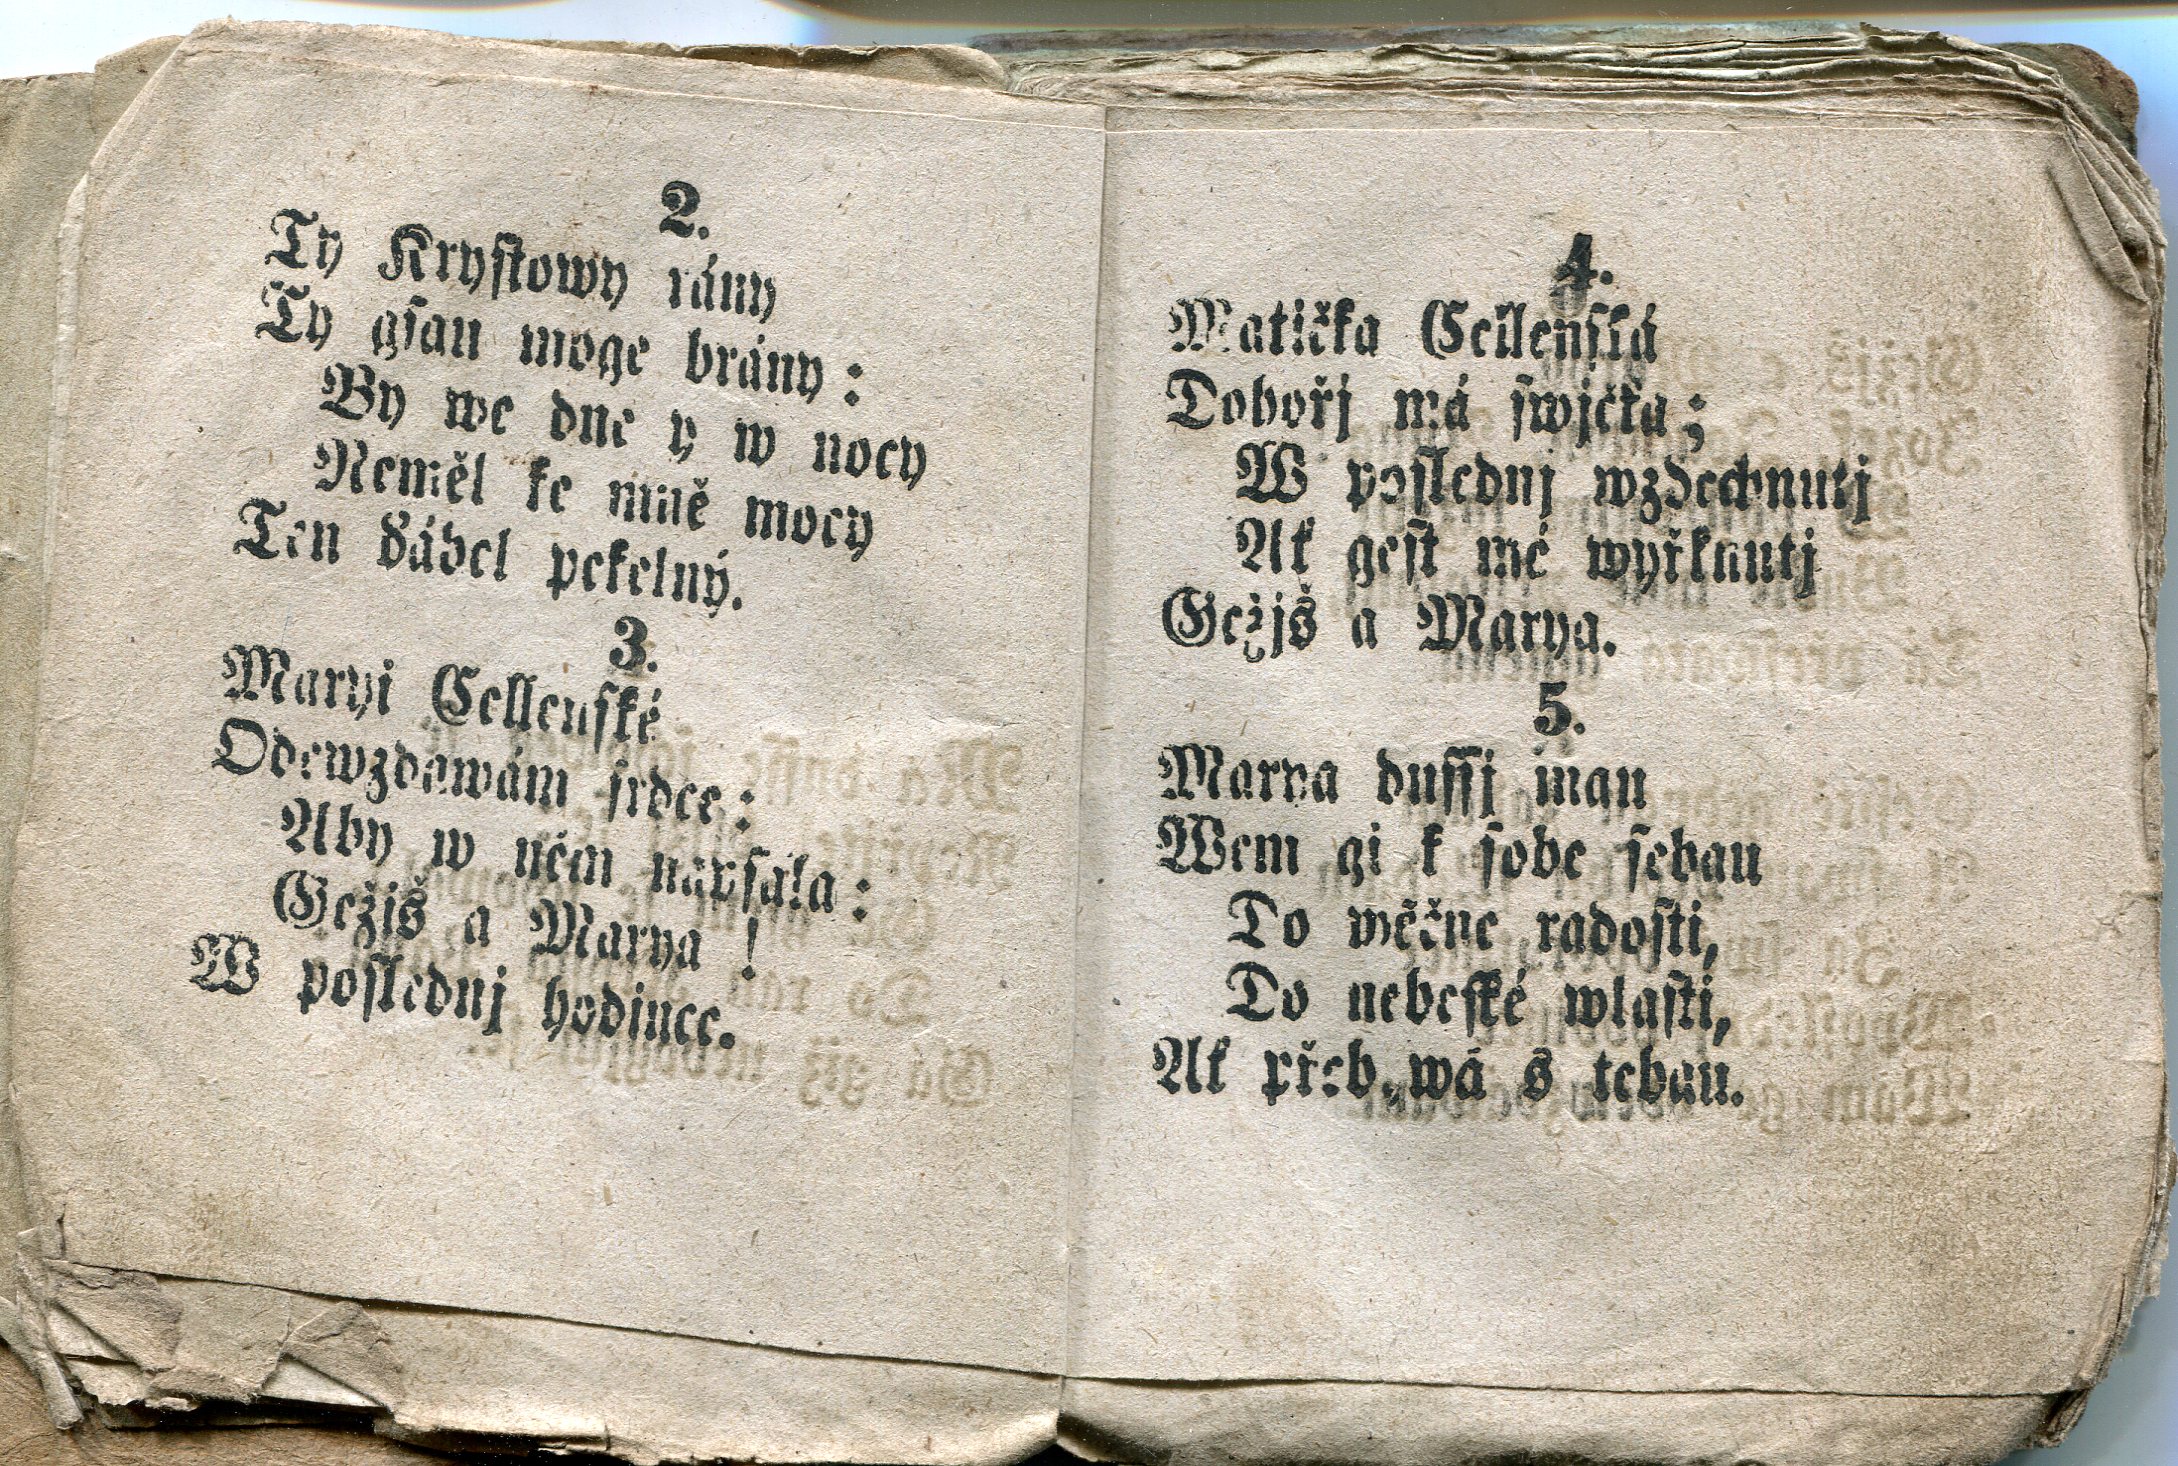 2.
Ty Krystowy rány
Ty gsau moge brány:
By we dne y w nocy
Neměl ke mně mocy
Ten ďábel pekelný.
3.
Maryi Cellenské
Odewzdawám srdce:
Aby w něm napsala:
Gežiš a Marya!
W poslednj hodince.
4.
Matička Cellenská
Dohořj má swjčka;
W poslednj wzdechnutj
Ak gest mé wyřknutj
Gežjš a Marya.
5.
Marya dussj mau
Wem gi k sobe sebau
Do wěčne radosti,
Do nebeské wlasti,
Ak přebywá s tebau.